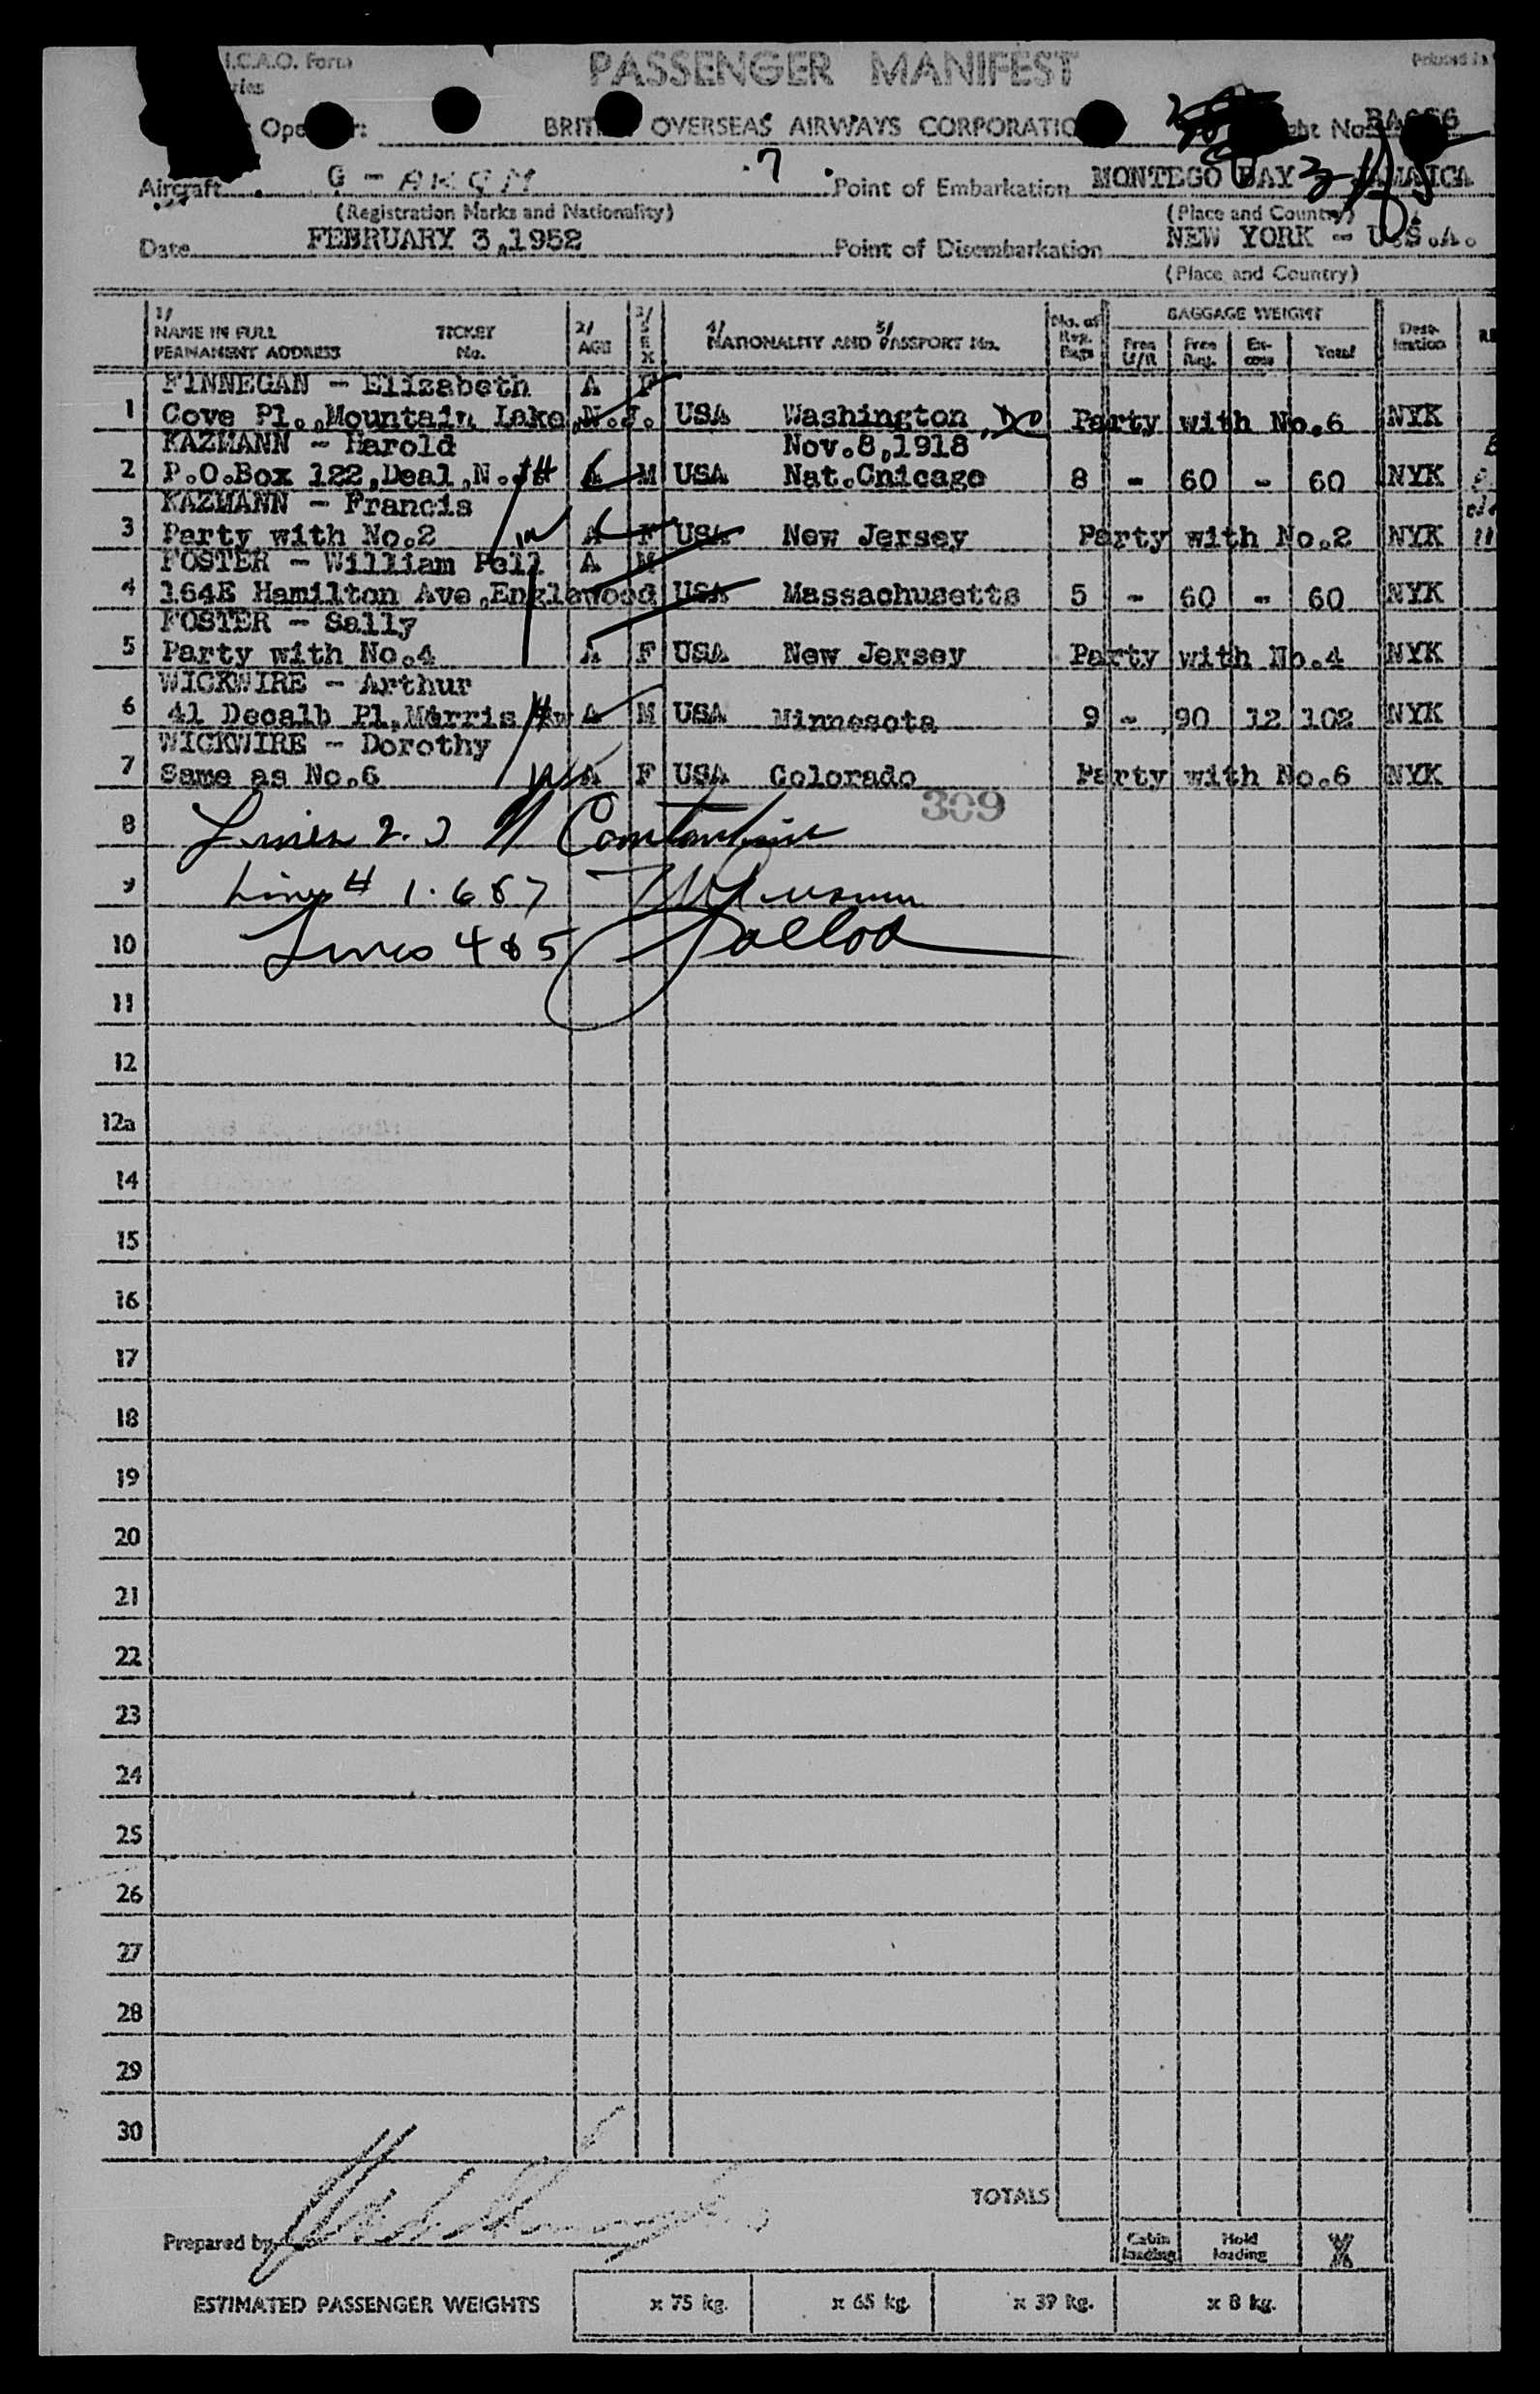 I.C.A.O. Form
PASSENGER MANIFEST
Printed in
BRIT OVERSEAS AIRWAYS CORPORATIO
Aircraft G - AKGM 7 Point of Embarkation MONTEGO BAY JAMAICA
(Registration Marks and Nationality) (Place and Country)
Date FEBRUARY 3,1952 Point of Disembarkation NEW YORK - U.S.A.
(Place and Country)
1/ NAME IN FULL PERMANENT ADDRESS TICKET No. 2/ AGE 3/ SEX 4/ NATIONALITY AND 5/ PASSPORT No. No. of Reg. Bags BAGGAGE WEIGHT Free U/R Free Reg. Ex-cess Total Dest-ination
FINNEGAN - Elizabeth A F
1 Cove Pl.,Mountain Lake,N.J. USA Washington, Party with No.6 NYK
KAZMANN - Harold Nov.8,1918
2 P.O.Box 122,Deal,N.J. A M USA Nat.Cnicago 8 - 60 - 60 NYK
KAZMANN - Francis
3 Party with No.2 A F USA New Jersey Party with No.2 NYK
FOSTER - William Pell A M
4 164E Hamilton Ave,Englewood USA Massachusetts 5 - 60 - 60 NYK
FOSTER - Sally
5 Party with No.4 A F USA New Jersey Party with No.4 NYK
WICKWIRE - Arthur
6 41 Decalb Pl,Morris A M USA Minnesota 9 - 90 12 102 NYK
WICKWIRE - Dorothy
7 Same as No.6 A F USA Colorado Party with No.6 NYK
309
8 Lines 2. 3
9 Lines # 1. 6 & 7
10 Lines 4 & 5
11
12
12a
14
15
16
17
18
19
20
21
22
23
24
25
26
27
28
29
30
TOTALS
Prepared by
Cabin loading Hold loading
ESTIMATED PASSENGER WEIGHTS x 75 kg. x 65 kg. x 39 kg. x 8 kg.